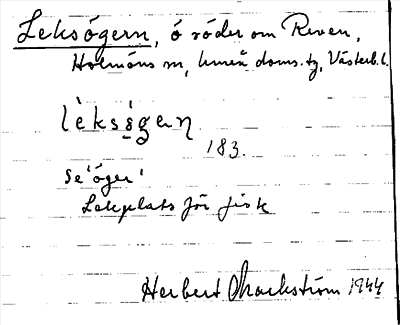 Leksögern, ö söder om Reven,
Holmöns sn, Umeå doms.tg, Västerb.l.
lèksö̀gerṇ
183.
se 'öger'
Lekplats för fisk
Herbert Markström 1944